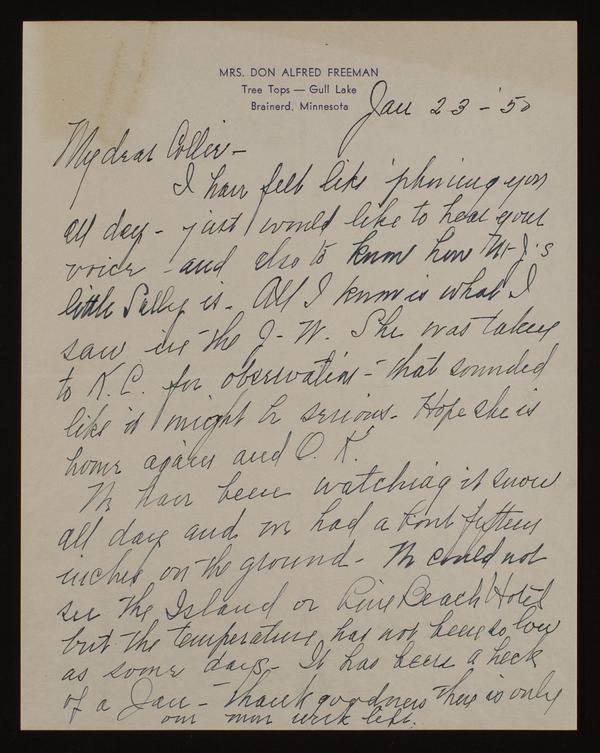 MRS. DON ALFRED FREEMAN
Tree Tops — Gull Lake
Brainerd, Minnesota
Jan 23 - '50
My dear Collie -
I have felt like 'phoning you
all day - just would like to hear your
voice - and also to know how M-J's
little Sally is. All I know is what I
saw in the J-W. She was taken
to K.C. for observation - that sounded
like it might be serious. Hope she is
home again and O.K.
We have been watching it snow
all day and we had about fifteen
inches on the ground - We could not
see the Island or Pine Beach Hotel
but the temperature has not been so low
as some days - It has been a heck
of a Jan - thank goodness there is only
one more week left.